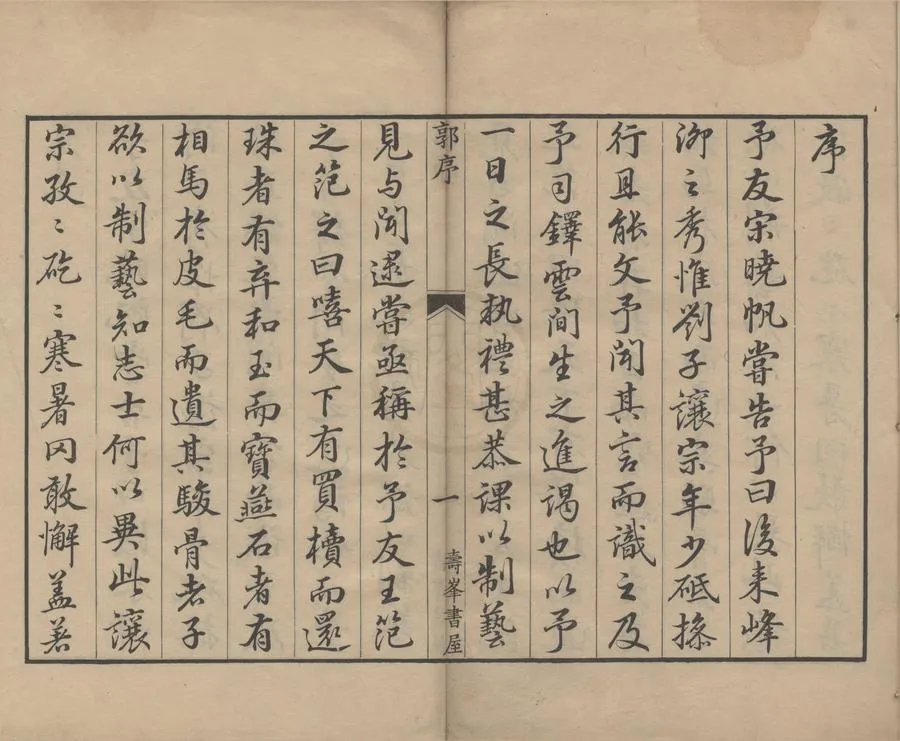 序
予友宋曉帆嘗告予曰後来峰
泖之秀惟劉子讓宗年少砥操
行且能文予聞其言而識之及
予司鐸雲間生之進謁也以予
一日之長執禮甚恭課以制藝
郭序
一
壽峯書屋
見与聞逮嘗亟稱於予友王范
之范之曰嘻天下有買櫝而還
珠者有弃和玉而寶燕石者有
相馬於皮毛而遺其駿骨者子
欲以制藝知志士何以異此讓
宗孜〻矻〻寒暑罔敢懈盖著